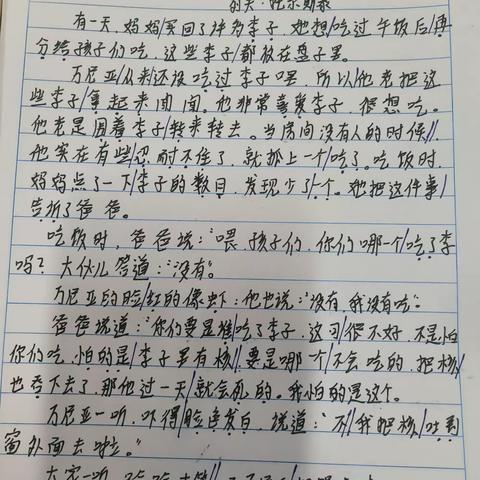 有一天，妈妈/买回了许多李子，她想/吃过午饭后/再
分给孩子们吃，这些李子/都放在盘子里。
万尼亚/从来还没吃过李子呢，所以/他老把这
些李子/拿起来闻闻。他非常喜爱李子，很想吃。
他老是围着李子/转来转去。当房间没有人的时候//，
他实在有些/忍耐不住了，就抓上一个/吃了。吃饭时，
妈妈点了一下/李子的数目，发现少了/一个。她把这件事/
告诉了爸爸。
吃饭时，爸爸说："喂，孩子们，你们哪一个/吃了李
吗？大伙儿答道："没有。"
万尼亚的脸/红的像虾；他也说："没有，我没有吃。"
爸爸说道："你们要是谁/吃了李子，这可/很不好，不是怕
你们吃，怕的是/李子里有核//，要是哪一个/不会吃的，把核/
也吞下去了，那他过一天/就会死的。我怕的是这个。
万尼亚一听，吓得/脸色发白，说道："不/我把核/吐到
窗外面去啦。"
大家一听